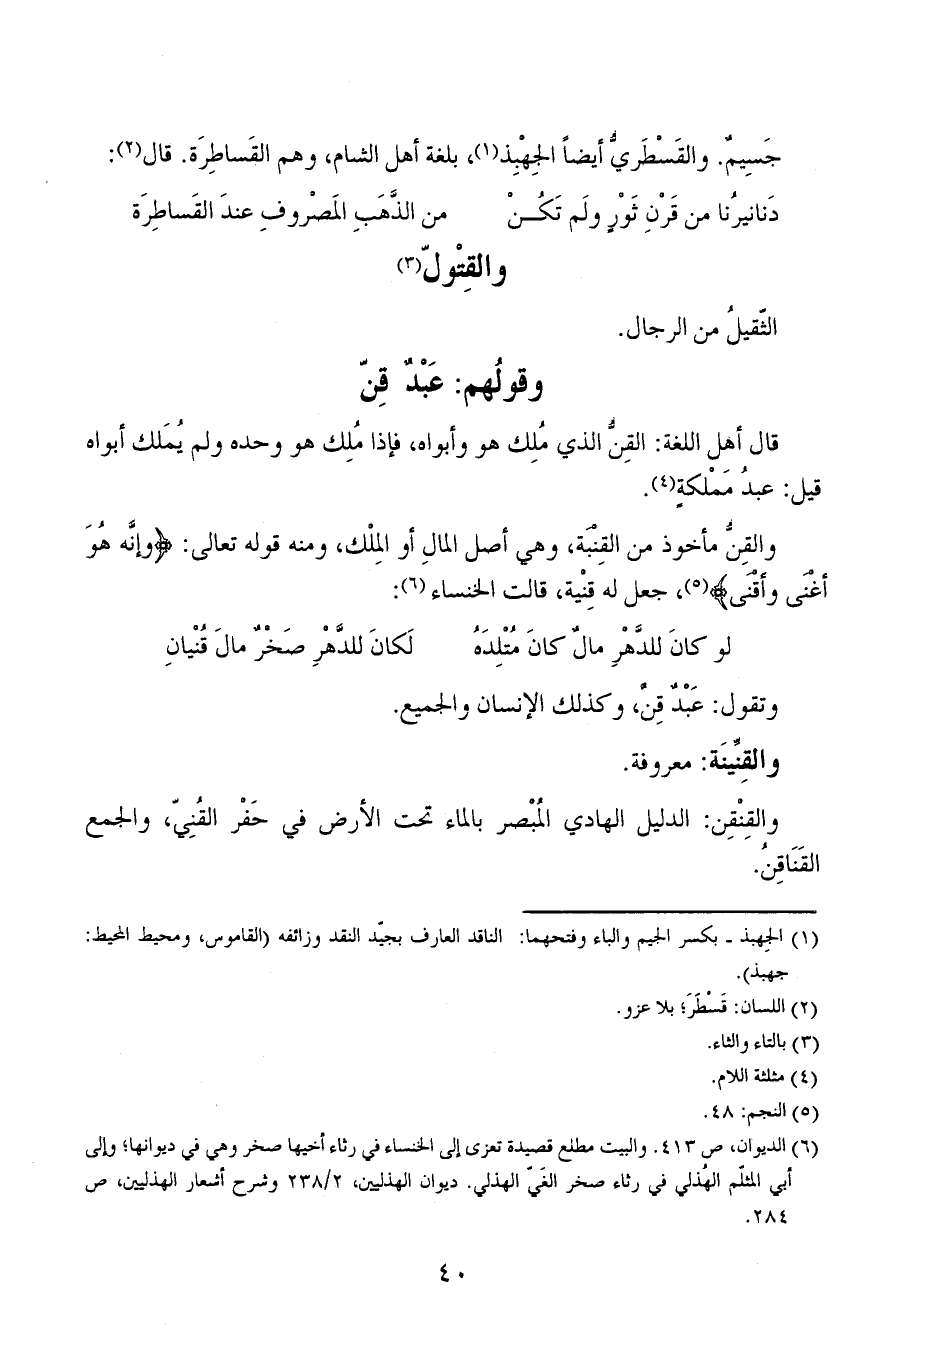 جَسِيمٌ. والقَسْطَريُّ أيضاً الجِهْبِذ(١)، بلغة أهل الشام، وهم القَساطِرَة. قال(٢):
دَنانيرُنا من قَرْنِ ثَوْرٍ ولَم تَكُـنْ من الذَّهَبِ المَصْروفِ عندَ القَساطِرَة
والقِتْولّ(٣)
الثّقيلُ من الرجال.
وقولُهم: عَبْدٌ قِنّ
قال أهل اللغة: القِنُّ الذي مُلِك هو وأبواه، فإذا مُلِك هو وحده ولم يُمَلك أبواه
قيل: عبدُ مَمْلكةٍ(٤).
والقِنُّ مأخوذ من القِنْيَة، وهي أصل المالِ أو المِلْك، ومنه قوله تعالى: ﴿وإنَّه هُوَ
أغْنَى وأقْنَى﴾(٥)، جعل له قِنْية، قالت الخنساء(٦):
لو كانَ للدَّهْرِ مالٌ كانَ مُتْلِدَهُ لَكانَ للدَّهْرِ صَخْرٌ مالَ قُنْيانِ
وتقول: عَبْدٌ قِنٌّ، وكذلك الإنسان والجميع.
والقِنِّينَة: معروفة.
والقِنْقِن: الدليل الهادي المُبْصر بالماء تحت الأرض في حَفْر القُنِيّ، والجمع
القَنَاقِنُ.
(١) الجهبذ ـ بكسر الجيم والباء وفتحهما: الناقد العارف بجيّد النقد وزائفه (القاموس، ومحيط المحيط:
جهبذ).
(٢) اللسان: قَسْطَرَ؛ بلا عزو.
(٣) بالتاء والثاء.
(٤) مثلثة اللام.
(٥) النجم: ٤٨.
(٦) الديوان، ص ٤١٣. والبيت مطلع قصيدة تعزى إلى الخنساء في رثاء أخيها صخر وهي في ديوانها؛ وإلى
أبي المثلّم الهُذلي في رثاء صخر الغَيّ الهذلي. ديوان الهذليين، ٢٣٨/٢ وشرح أشعار الهذليين، ص
٢٨٤.
٤٠